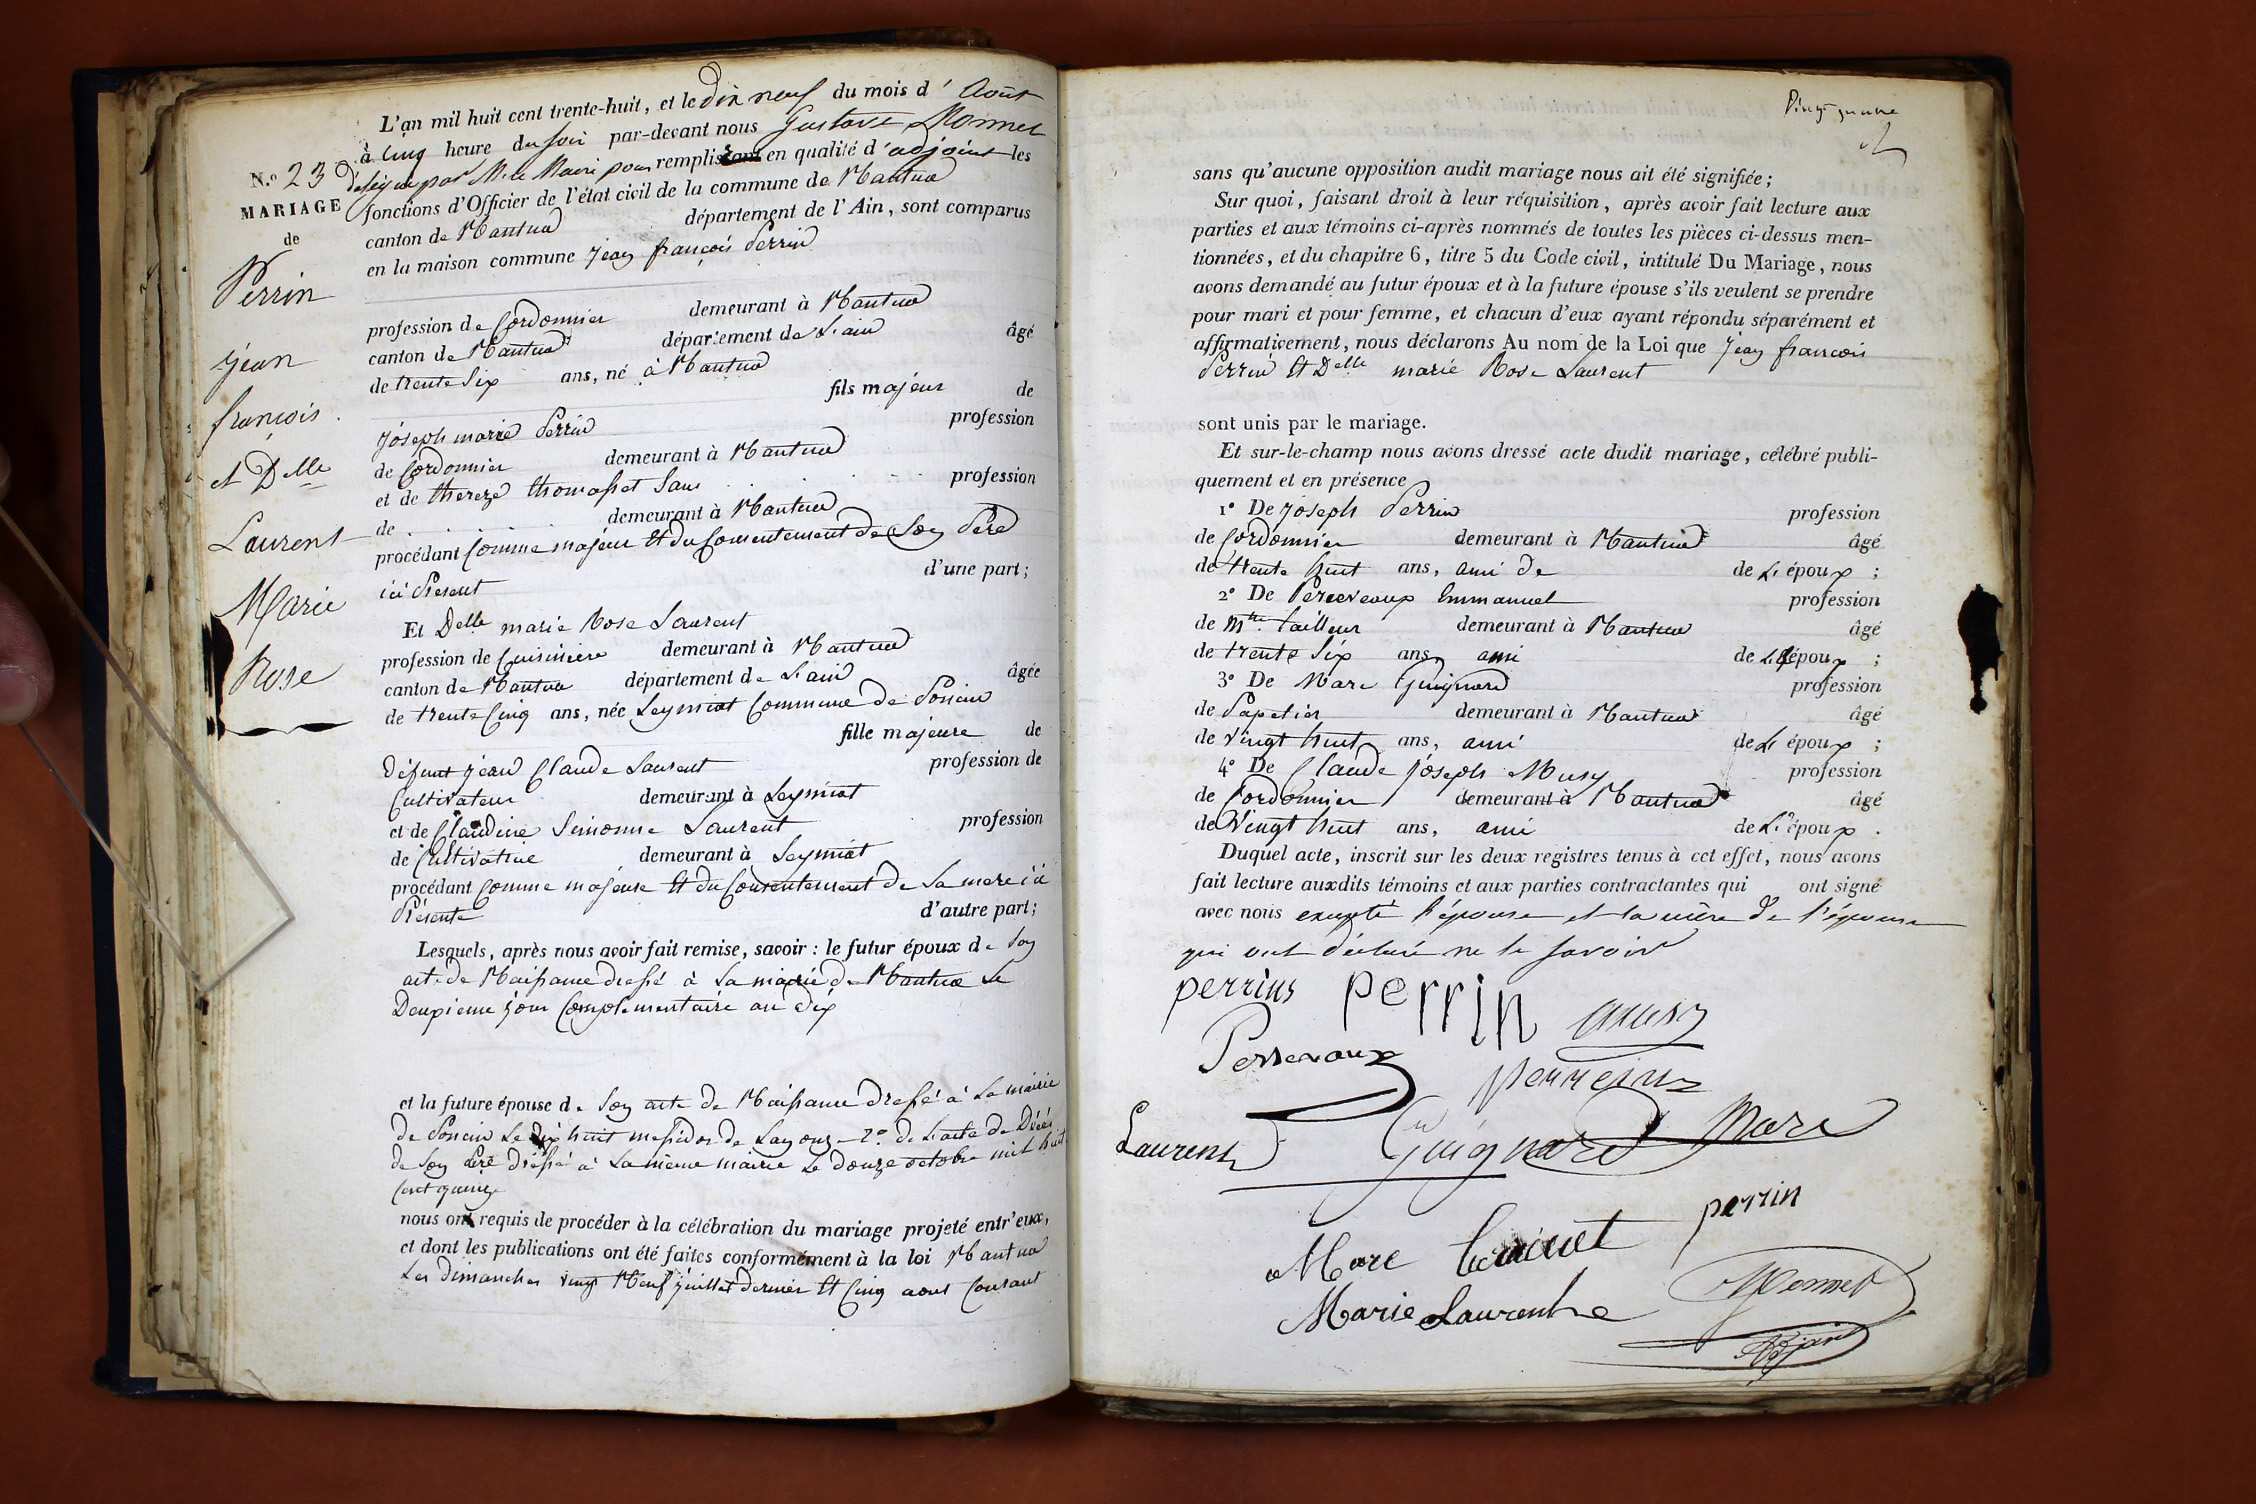 L'an mil huit cent trente-huit, et le dix neuf du mois d' Août
à cinq heure du soir par-devant nous Gustave Monnet
désigné par Mr le Maire pour remplissant en qualité d'adjoint les
fonctions d'Officier de l'état civil de la commune de Nantua
canton de Nantua département de l'Ain, sont comparus
en la maison commune Jean françois Perrin
profession de Cordonnier demeurant à Nantua
canton de Nantua département de L'ain âgé
de trente Six ans, né à Nantua
fils majeur de
Joseph marie Perrin profession
de Cordonnier demeurant à Nantua
et de thereze thomasset Sans profession
de demeurant à Nantua
procédant Comme majeur Et du Consentement de Son Père
ici Présent d'une part;
Et Delle marie Rose Laurent
profession de Cuisinière demeurant à Nantua
canton de Nantua département de L'ain âgée
de trente Cinq ans, née Leymiat Commune de Poncin
fille majeure de
Défunt jean Claude Laurent profession de
Cultivateur demeurant à Leymiat
et de Claudine Simonne Laurent profession
de Cultivatrice demeurant à Leymiat
procédant Comme majeure Et du Consentement de Sa mere ici
Présente d'autre part;
Lesquels, après nous avoir fait remise, savoir : le futur époux de Son
acte de Naissance dressé à La mairie de Nantua Le
Deuxieme jour Complementaire an dix
et la future épouse de Son acte de Naissance dressé à La mairie
de Poncin Le dix huit messidor de L'an onze - 2° de L'acte de Décès
de Son Père dréssé à La même mairie Le douze octobre mil huit
Cent quinze
nous ont requis de procéder à la célébration du mariage projeté entr'eux,
et dont les publications ont été faites conformément à la loi Nantua
Les dimanches vingt Neuf juillet dernier Et Cinq aout Courant
N.o 23
MARIAGE
de
Perrin
jean
françois
et Dlle
Laurent
Marie
Rose
Vingt quatre
sans qu'aucune opposition audit mariage nous ait été signifiée;
Sur quoi, faisant droit à leur réquisition, après avoir fait lecture aux
parties et aux témoins ci-après nommés de toutes les pièces ci-dessus men-
tionnées, et du chapitre 6, titre 5 du Code civil, intitulé Du Mariage, nous
avons demandé au futur époux et à la future épouse s'ils veulent se prendre
pour mari et pour femme, et chacun d'eux ayant répondu séparément et
affirmativement, nous déclarons Au nom de la Loi que Jean francois
Perrin Et Delle marie Rose Laurent
sont unis par le mariage.
Et sur-le-champ nous avons dressé acte dudit mariage, célébré publi-
quement et en présence
1° De Joseph Perrin profession
de Cordonnier demeurant à Nantua âgé
de trente huit ans, ami de de L' époux ;
2° De Perrevoux Emmanuel profession
de Mtre tailleur demeurant à Nantua âgé
de trente Six ans, ami de L' époux ;
3° De Marc Guignard profession
de Papetier demeurant à Nantua âgé
de Vingt huit ans, ami de L' époux ;
4° De Claude Joseph Musy profession
de Cordonnier demeurant à Nantua âgé
de Vingt huit ans, ami de L' époux .
Duquel acte, inscrit sur les deux registres tenus à cet effet, nous avons
fait lecture auxdits témoins et aux parties contractantes qui ont signé
avec nous excepté l'épouse et la mère de l'épouse
qui ont déclaré ne le savoir
perrins perrin musy
Perrevoux
Laurent Guignard Marc
perrin
Marc
Monnet
Marie Laurent
Adjoint